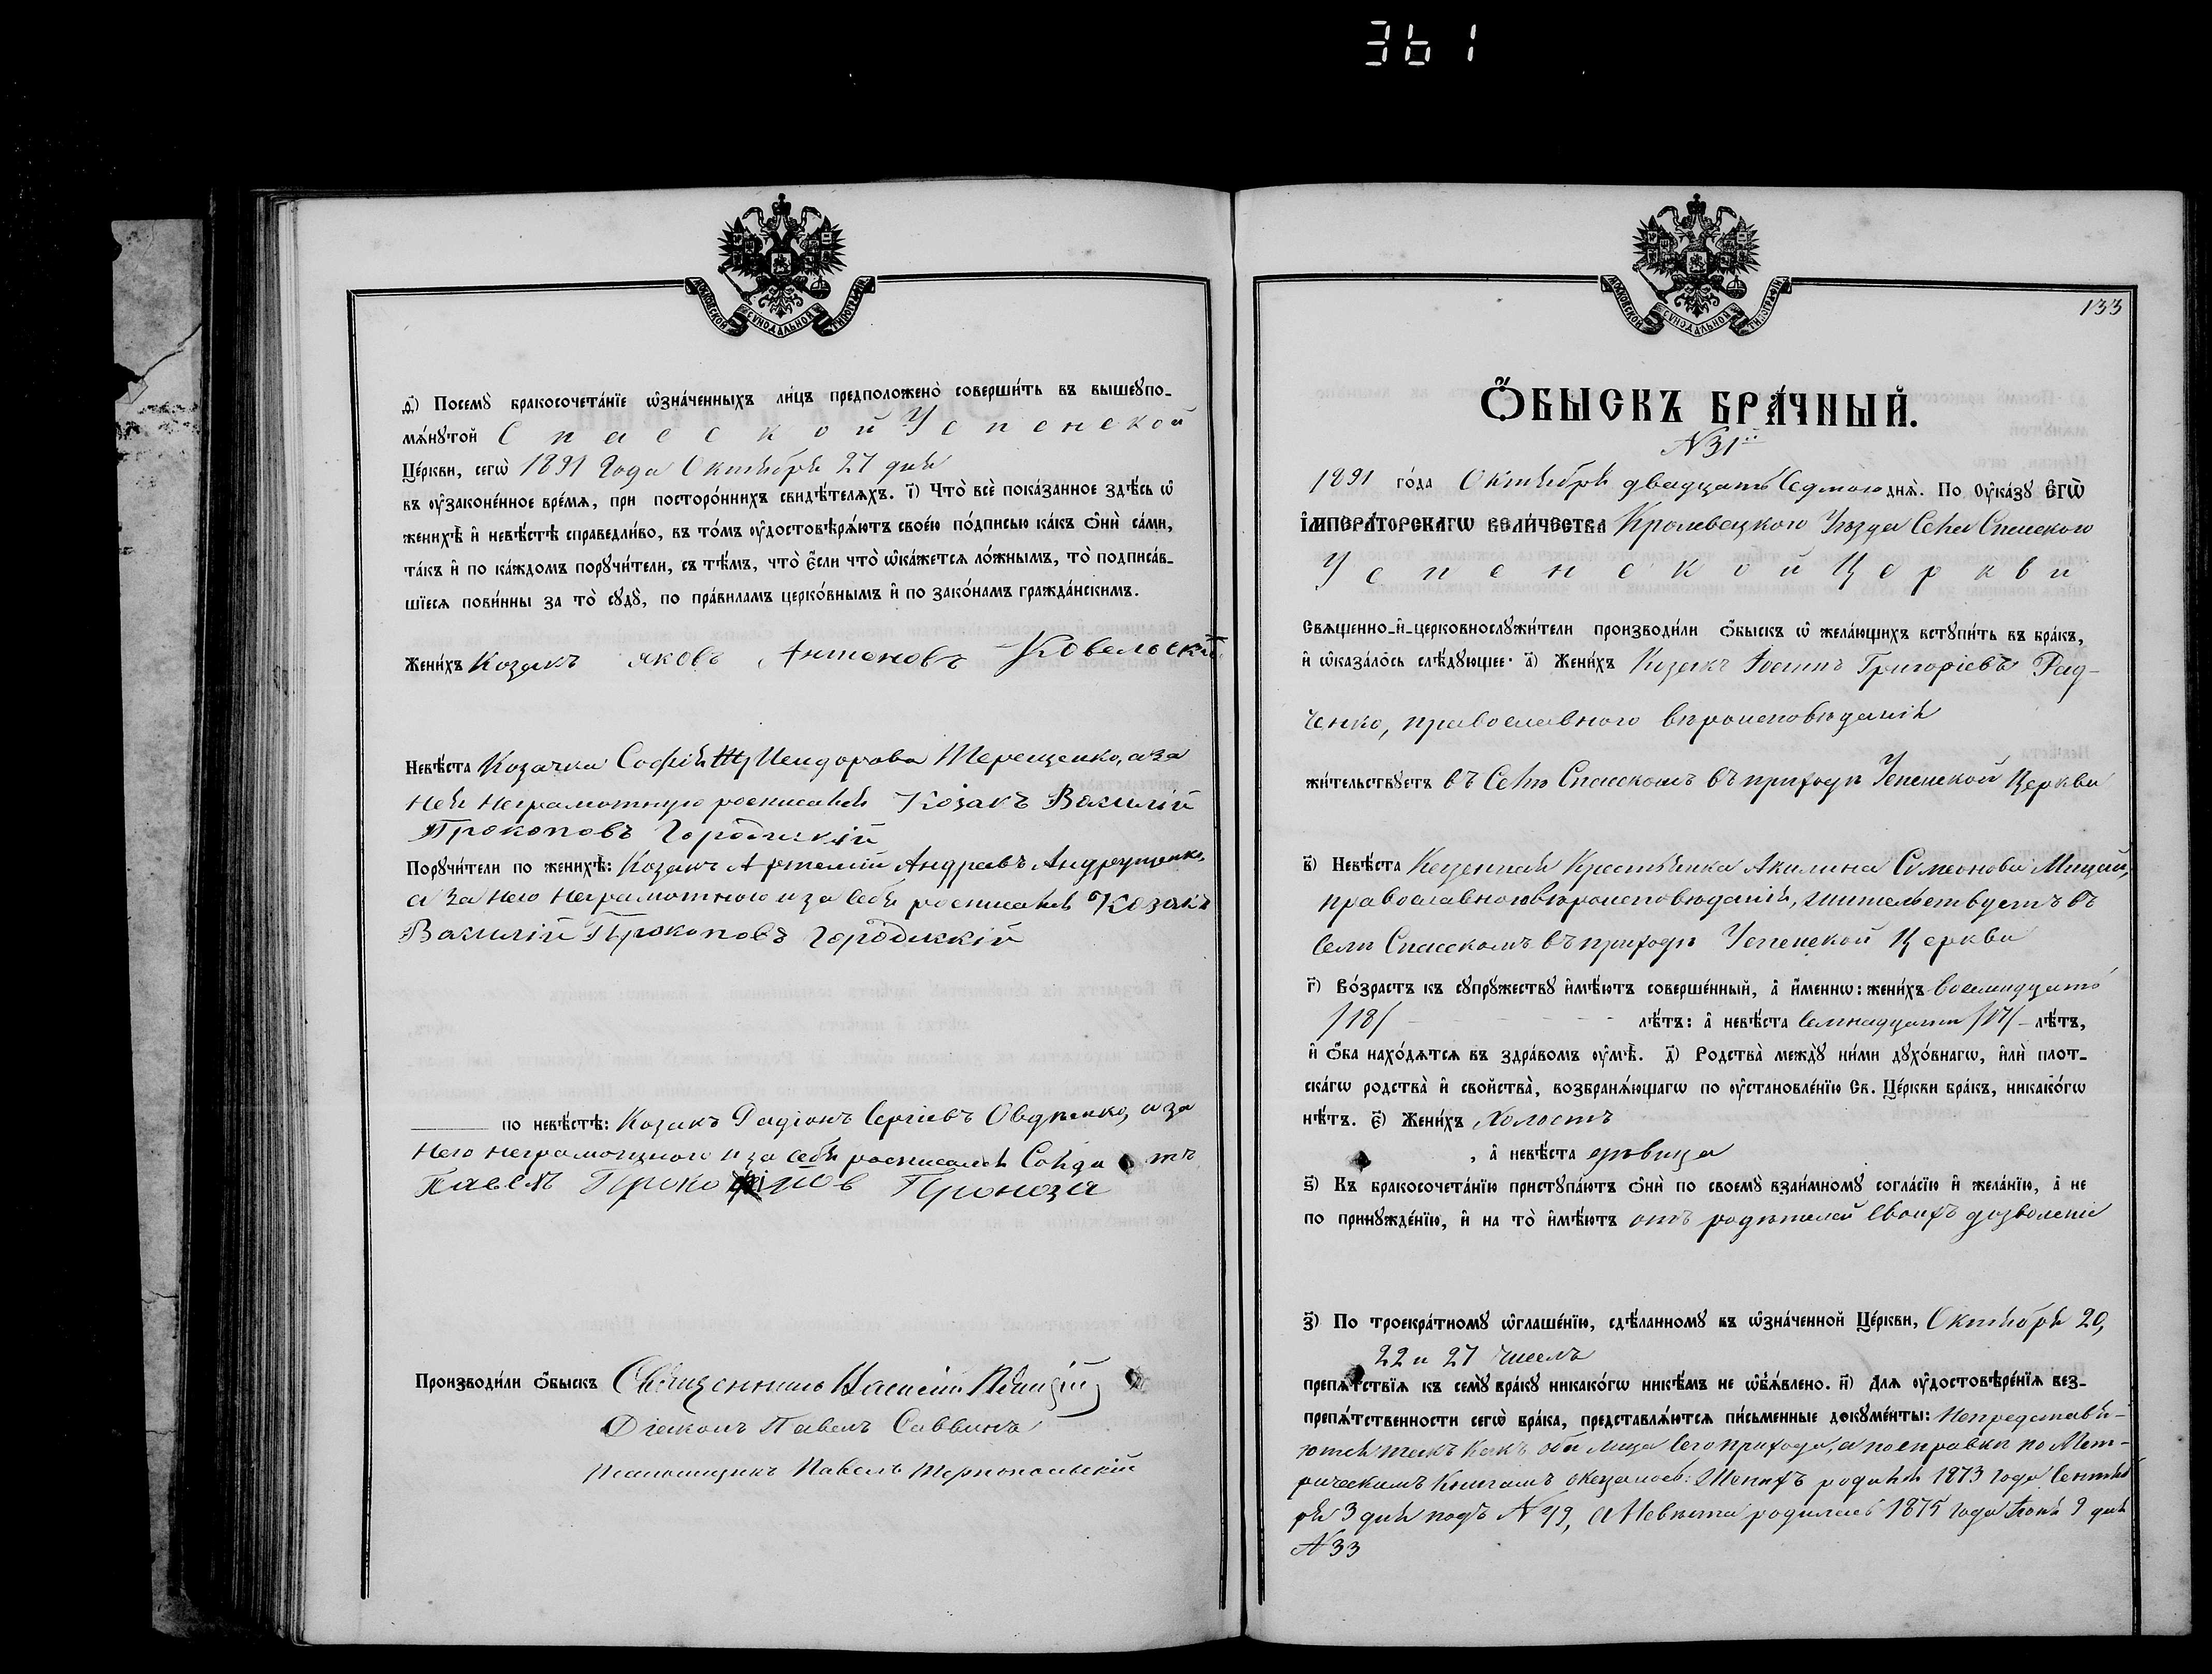 361
МОСКОВСКОЙ СѴНОДАЛЬНОЙ ТИПОГРАФІИ
ѳ҃) Посемꙋ бракосочета́нїе ѡ҆зна́ченныхъ ли́цъ предположено̀ соверши́ть въ вышеꙋпо-
мѧ́нꙋтой Спасской Успенской
Це́ркви, сегѡ̀ 1891 года Октября 27 дня
въ ᲂу҆законе́нное вре́мѧ, при посторо́ннихъ свидѣ́телѧхъ. і҃) Что̀ всѐ пока́занное здѣ́сь ѡ҆
женихѣ̀ и҆ невѣ́стѣ справедли́во, въ то́мъ ᲂу҆достовѣрѧ́ютъ свое́ю по́дписью ка́къ ѻ҆нѝ са́ми,
та́къ и҆ по ка́ждомъ порꙋчи́тели, съ тѣ́мъ, что̀ є҆́сли что̀ ѡ҆ка́жетсѧ ло́жнымъ, то̀ подписа́в-
шїесѧ пови́нны за то̀ сꙋдꙋ̀, по пра́виламъ церко́внымъ и҆ по зако́намъ гражда́нскимъ.
Жени́хъ Козакъ яковъ Антоновъ Ковельскій
Невѣ́ста Козачка Софія Исидорова Терещенко, а за
нея неграмотную росписался Козакъ Василій
Прокоповъ Городискій
Порꙋчи́тели по женихѣ̀: Козакъ Артемій Андреевъ Андрущенко,
а за него неграмотного и за себя росписался Козакъ
Василій Прокоповъ Городискій
по невѣ́стѣ: Козакъ Радіонъ Сергіевъ Овдѣенко, а за
него неграмотного и за себя росписался Солдатъ
Павелъ Прокопов Проноза
Производи́ли ѻ҆́быскъ Священникъ Василій
Діаконъ Павелъ Саввинъ
Псаломщикъ Павелъ Тернопольскій
МОСКОВСКОЙ СѴНОДАЛЬНОЙ ТИПОГРАФІИ
133
Ѻ҆́БЫСКЪ БРА́ЧНЫЙ.
N 31й
1891 го́да Октября двадцать седьмого днѧ̀. По Оу҆ка́зꙋ Є҆ГѠ̀
І҆МПЕРА́ТОРСКАГѠ ВЕЛИ́ЧЕСТВА Кролевецкого Уѣзда Села Спаского
Успенской Церкви
Свѧщенно-и҆-церковнослꙋжи́тели производи́ли ѻ҆́быскъ ѡ҆ жела́ющихъ встꙋпи́ть въ бра́къ,
и҆ ѡ҆каза́лось слѣ́дꙋющее: а҃) Жени́хъ Козакъ Іоаннъ Григоріевъ Рад-
ченко, православного вѣроисповѣданія
жи́тельствꙋетъ въ Селѣ Спасскомъ въ приходѣ Успенской Церкви
в҃) Невѣ́ста Казенная Крестьянка Акилина Симеонова Мицай,
православного вѣроисповѣданія, жительствуетъ въ
селѣ Спасскомъ въ приходѣ Успенской Церкви
г҃) Во́зрастъ къ сꙋпрꙋ́жествꙋ и҆мѣ́ютъ соверше́нный, а҆ и҆́менно: жени́хъ восемнадцать
/18/ лѣ́тъ: а҆ невѣ́ста семнадцать /17/ лѣ́тъ,
и҆ ѻ҆́ба нахо́дѧтсѧ въ здра́вомъ ᲂу҆мѣ̀. д҃) Родства̀ междꙋ̀ ни́ми дꙋхо́внагѡ, и҆лѝ плот-
ска́гѡ родства̀ и҆ сво́йства, возбранѧ́ющагѡ по ᲂу҆становле́нїю Св. Це́ркви бра́къ, никако́гѡ
нѣ́тъ. є҃) Жени́хъ холостъ
, а҆ невѣ́ста дѣвица
ѕ҃) Къ бракосочета́нїю пристꙋпа́ютъ ѻ҆нѝ по своемꙋ̀ взаи́мномꙋ согла́сїю и҆ жела́нїю, а҆ не
по принꙋжде́нїю, и҆ на то̀ и҆мѣ́ютъ отъ родителей своихъ дозволеніе
з҃) По троекра́тномꙋ ѡ҆глаше́нїю, сдѣ́ланномꙋ въ ѡ҆зна́ченной Це́ркви, Октября 20,
22 и 27 числъ
препѧ́тствїѧ къ семꙋ̀ бра́кꙋ никако́гѡ никѣ́мъ не ѡ҆б̾ѧ́влено. и҃) Длѧ ᲂу҆достовѣре́нїѧ без-
препѧ́тственности сегѡ̀ бра́ка, представлѧ́ютсѧ пи́сьменные докꙋме́нты: Непредставля-
ются такъ какъ оба лица сего прихода, а по справкѣ по Мет-
рическимъ Книгамъ оказалось: Женихъ родился 1873 года Сентяб
ря 3 дня подъ N 49, а Невѣста родилась 1875 года Іюня 9 дня
N 33